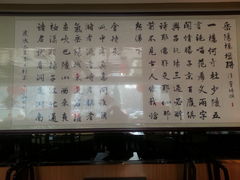 一樓何奇杜少陵五
言絕唱范希文兩字
關情滕子京百廢俱
興呂純陽三過必醉
詩耶儒耶吏耶仙耶
前不見古人使我愴
然涕下
諸君試看洞庭湖南
極瀟湘揚子江北通
巫峽巴陵山西來爽
氣岳州城東道巖疆
瀦者流者峙者鎮者
此中有真意問誰領
會得來